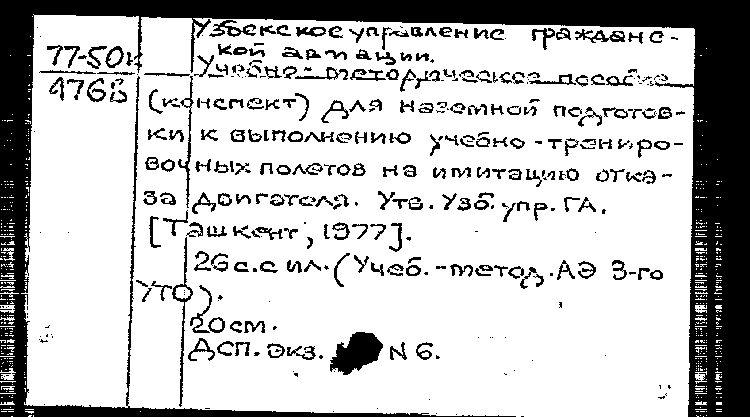 Узбекское управление гражданс-
кой авиации.
77-50к
Учебно-методическое пособие
476В
(конспект) для наземной подготов-
ки к выполнению учебно-трениро-
вочных полетов на имитацию отка-
за двигателя. Утв. Узб. упр. ГА.
[Ташкент, 1977].
26 с. с ил. (Учеб.-метод. АЭ 3-го
УТО).
20 см.
ДСП. Экз. N 6.